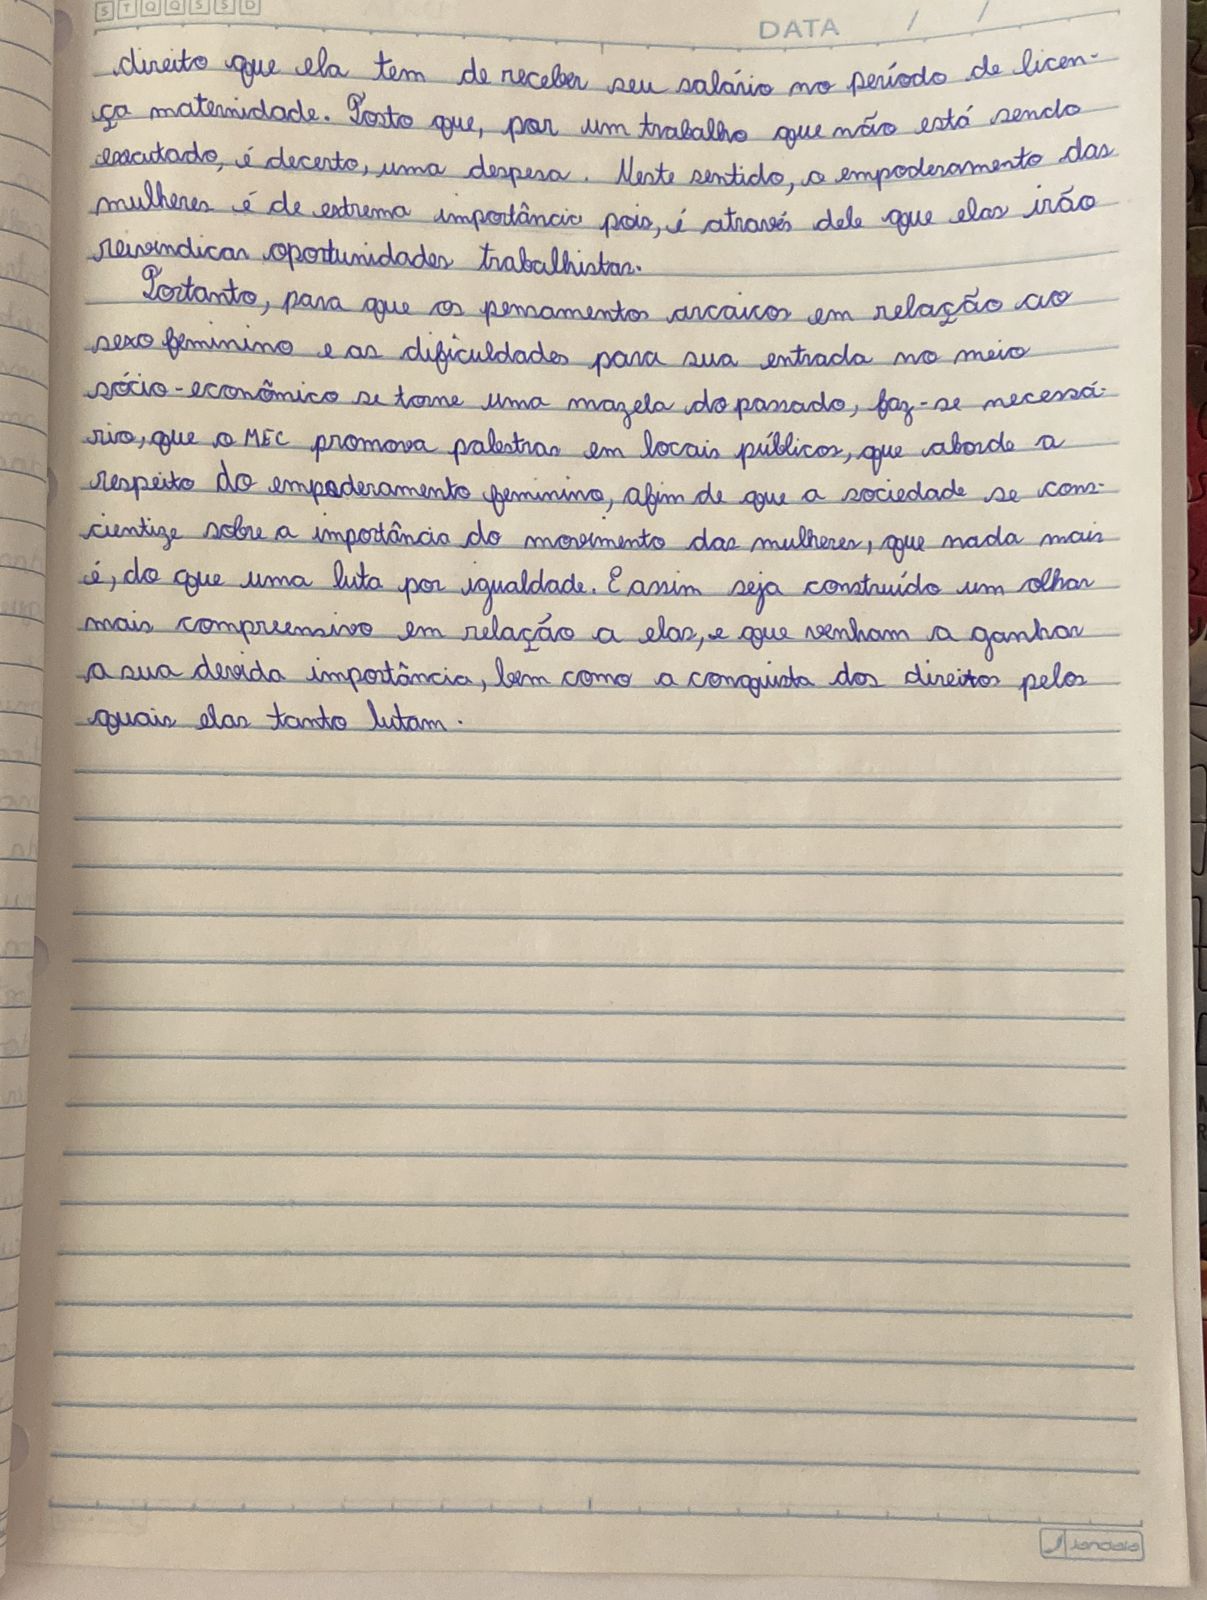 S T Q Q S S D
DATA / /
direito que ela tem de receber seu salário no período de licen-
ça maternidade. Posto que, por um trabalho que não está sendo
executado, é decerto, uma despesa. Neste sentido, o empoderamento das
mulheres é de extrema importância pois, é através dele que elas irão
reivindicar oportunidades trabalhistas.
Portanto, para que os pensamentos arcaicos em relação ao
sexo feminino e as dificuldades para sua entrada no meio
sócio-econômico se torne uma mazela do passado, faz-se necessá-
rio, que o MEC promova palestras em locais públicos, que aborde a
respeito do empoderamento feminino, afim de que a sociedade se cons-
cientize sobre a importância do movimento das mulheres, que nada mais
é, do que uma luta por igualdade. E assim seja construído um olhar
mais compreensivo em relação a elas, e que venham a ganhar
a sua devida importância, bem como a conquista dos direitos pelos
quais elas tanto lutam.
jandaia